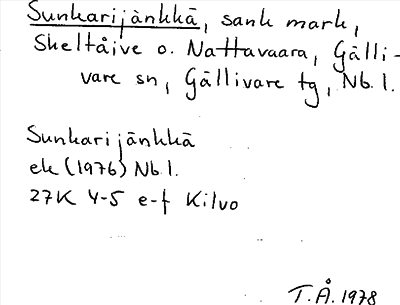 Sunkarijänkkä, sank mark,
Skeltåive o. Nattavaara, Gälli-
vare sn, Gällivare tg, Nb.l.
Sunkarijänkkä
ek (1976) Nb.l.
27K 4-5 e-f Kilvo
T.Å. 1978